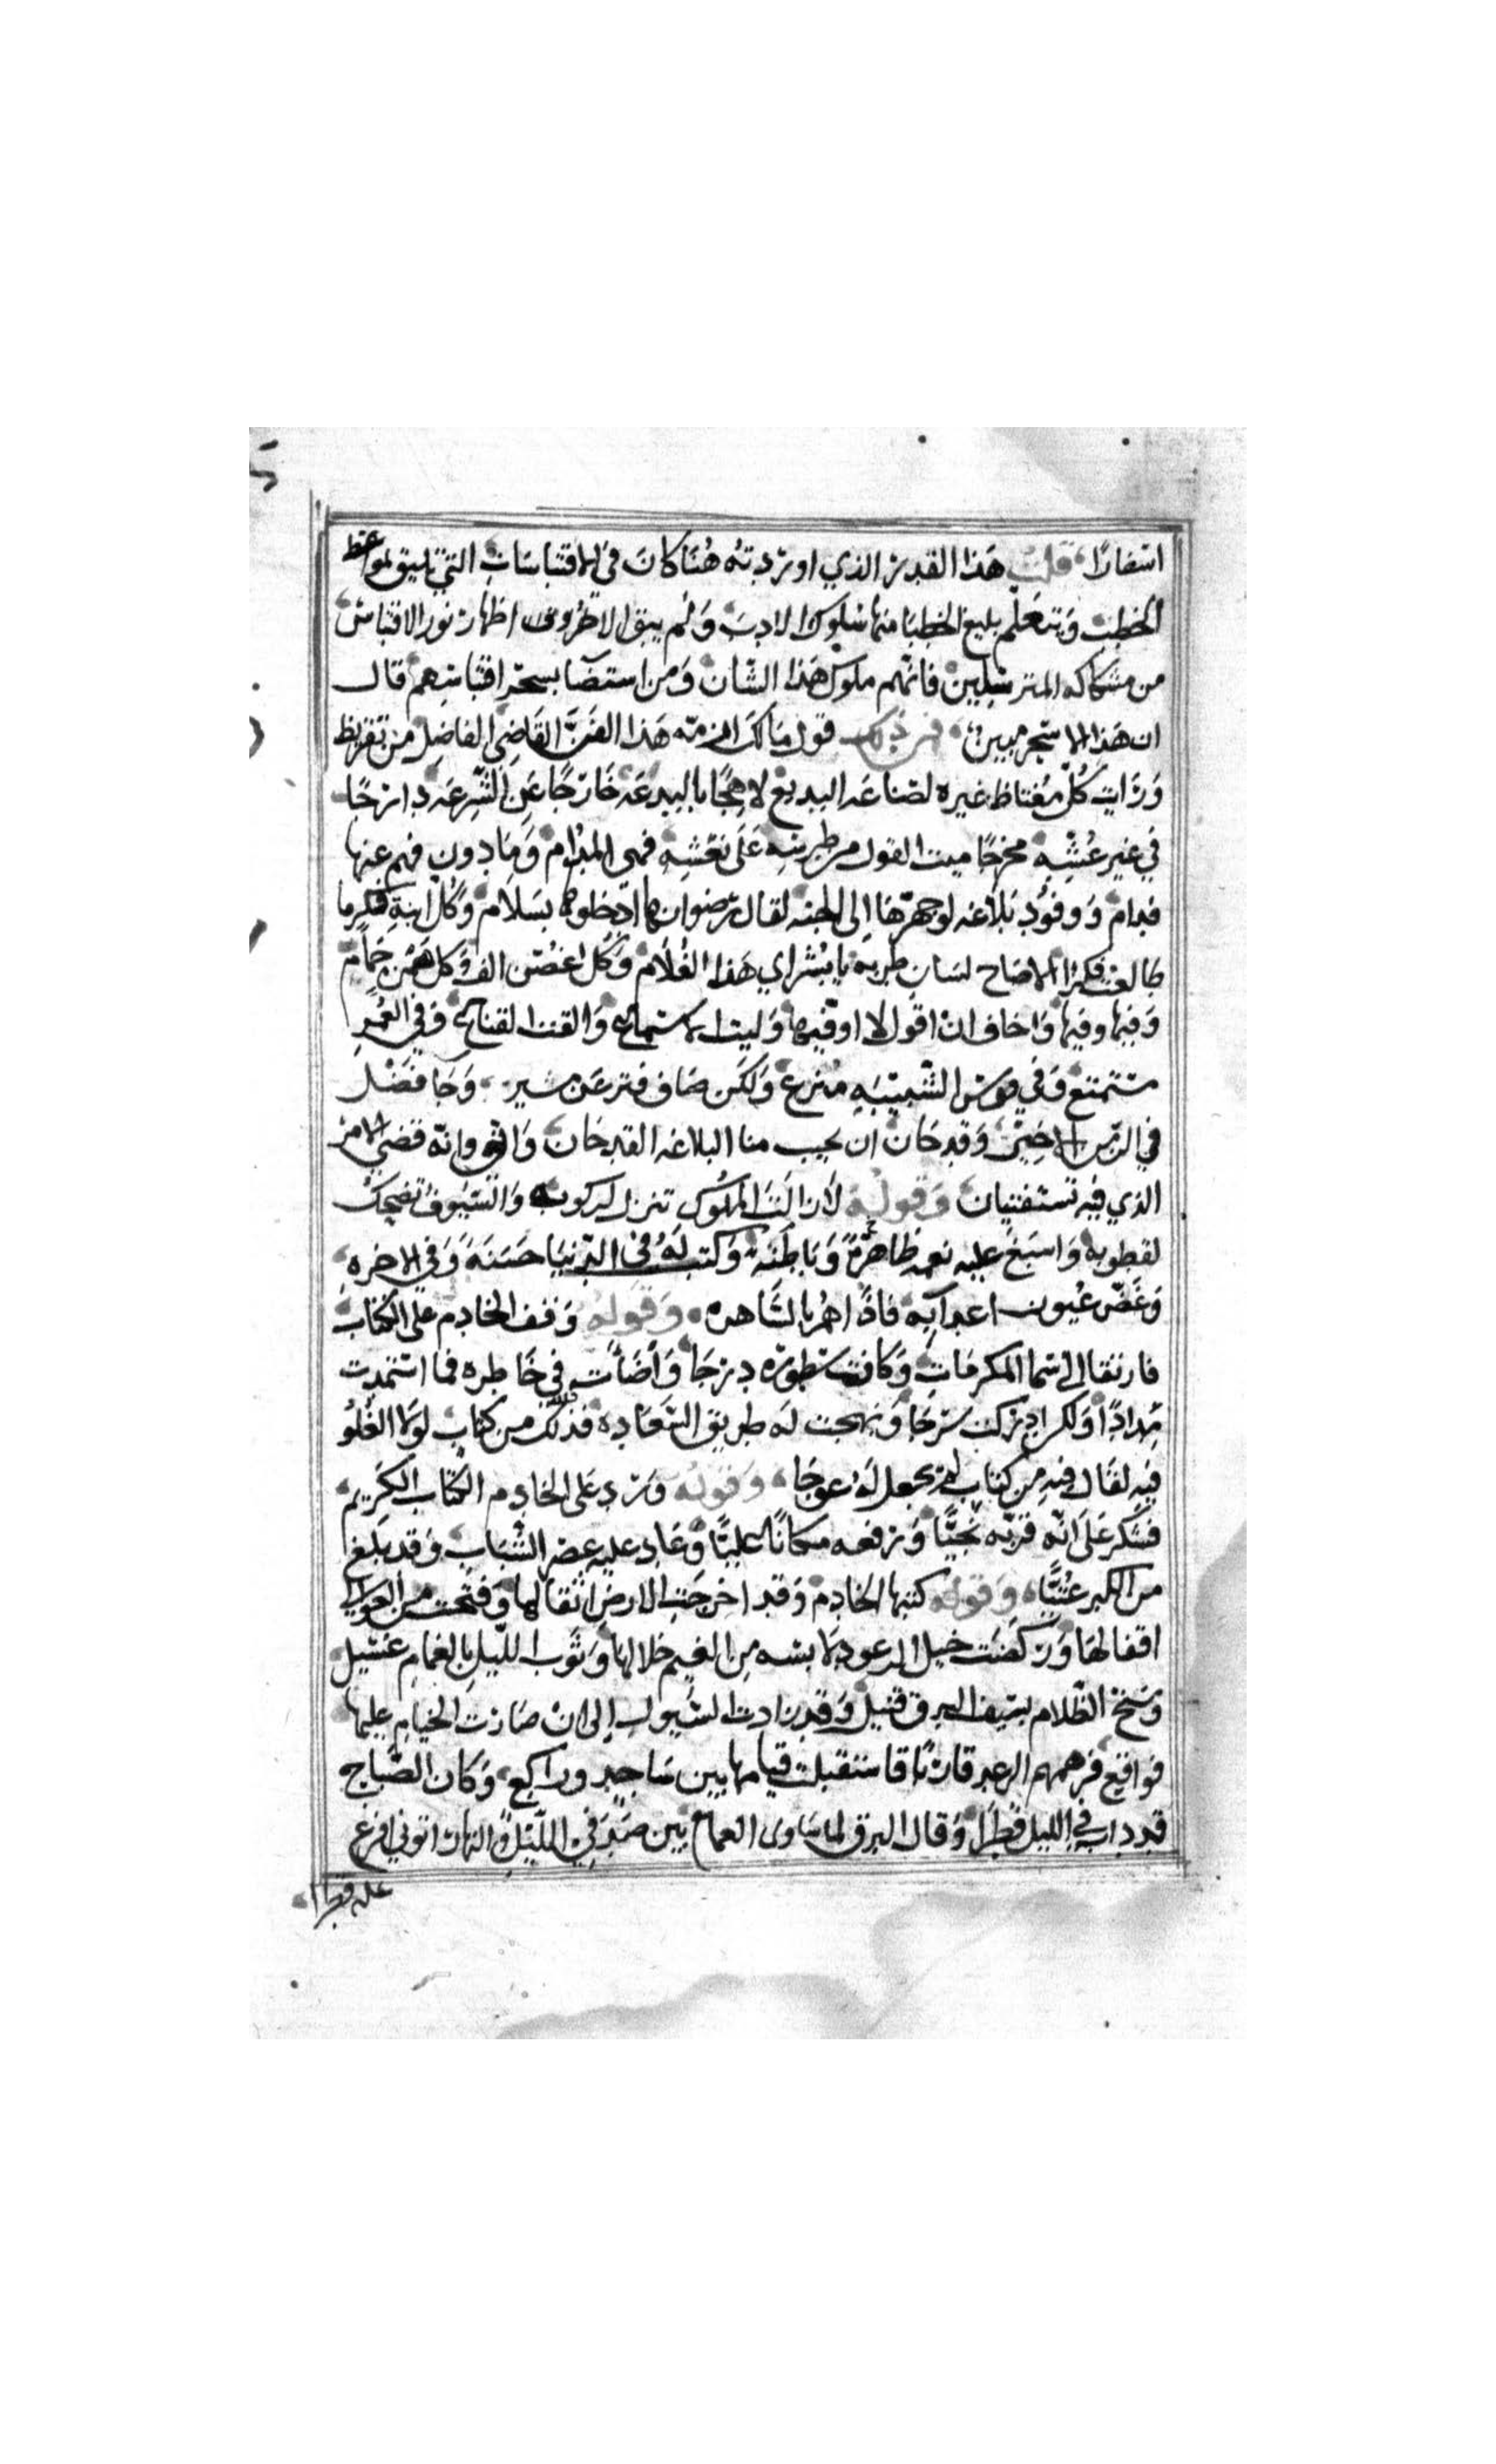 اسفارا قلت هذا القدر الذي اوردته هنا كان في الاقتباسات التي تليق لمواعظ
الخطب وتتعلم بليغ الخطبا منها سلوك الادب ولم يبق الا ظروف اظهار نور الاقتباس
من مشكاكه المترسلين فانهم ملوك هذا الشان ومن استضآ بسحر اقتباسهم قال
ان هذا الا سحر مبين فمن ذلك قول مالك ازمته هذا الفن القاضي الفاضل من تقريظ
ورايت كل مغتاظ غيره لصناعه البديع لاهجا بالبدعه خارجا عن الشرعه دارجا
في غير عشه مخرجا ميت القول من طرسه على نعشه فهي المدام ومادون فهم عنها
فدام ووفود بلاغه لوجهزها الى الجنه لقال رضوانها ادخلوها بسلام وكل ابنة فكر ما
طالعت فكرا الا صاح لسان طربه يا بشراي هذا الغلام وكل اغصن الف وكل همز حمام
وفيها وفيها واخاف ان اقول لا اوفيها وليت الاستماع والقننا لقناع وفي العمر
متمتع وفي قوس الشبيبه منزع ولكن ضاف فتر عن مسير وجا فضل
في الزمن الاخير وقد حان ان يجيب منا البلاغه القدحان واني وانه قضي الامر
الذي فيه تستفتيان وقوله لازالت الملوك تنزل لركوبه والسيوف تضحك
لقطوبه واسبغ عليه نعمه ظاهرة وباطنة وكتب له في الدنيا حسنة وفي الاخره
وغض عيون اعدآيه فاذا هم بالساهره وقوله وقف الخادم على الكتاب
فارتقا الى سما المكرمات وكانت سطوره درجا واضأت في خاطره فما استمدت
مدادا ولكن ادركت سرجا ونهجت له طريق السعاده فذلك من كتاب لولا الغلو
فيه لقال فيه من كتاب لم يجعل له عوجا وقوله ورد على الخادم الكتاب الكريم
فشكر على انه قربه نجيا ورفعه مكانا عليا وعاد عليه عصر الشباب وقد بلغ
من الكبر عتيا وقوله كتبها الخادم وقد اخرجت الارض اثقالها وفتحت من العوالي
اقفالها وركضت خيل الرعود لابسه من الغيم خلالها وثوب الليل بالغمام غسيل
وسنخ الظلام بسيف البرق قتيل وقد زادت السيول الى ان صارت الخيام عليها
فواقيع فرهمهم الرعد قارئا فاستقبلت قيامها بين ساجد وراكع وكان الصباح
قد داب في الليل قطرا وقال البرق لما ساوى الغمام بين صدفي الليل والنهار اتوني افرغ
عليه قطرا